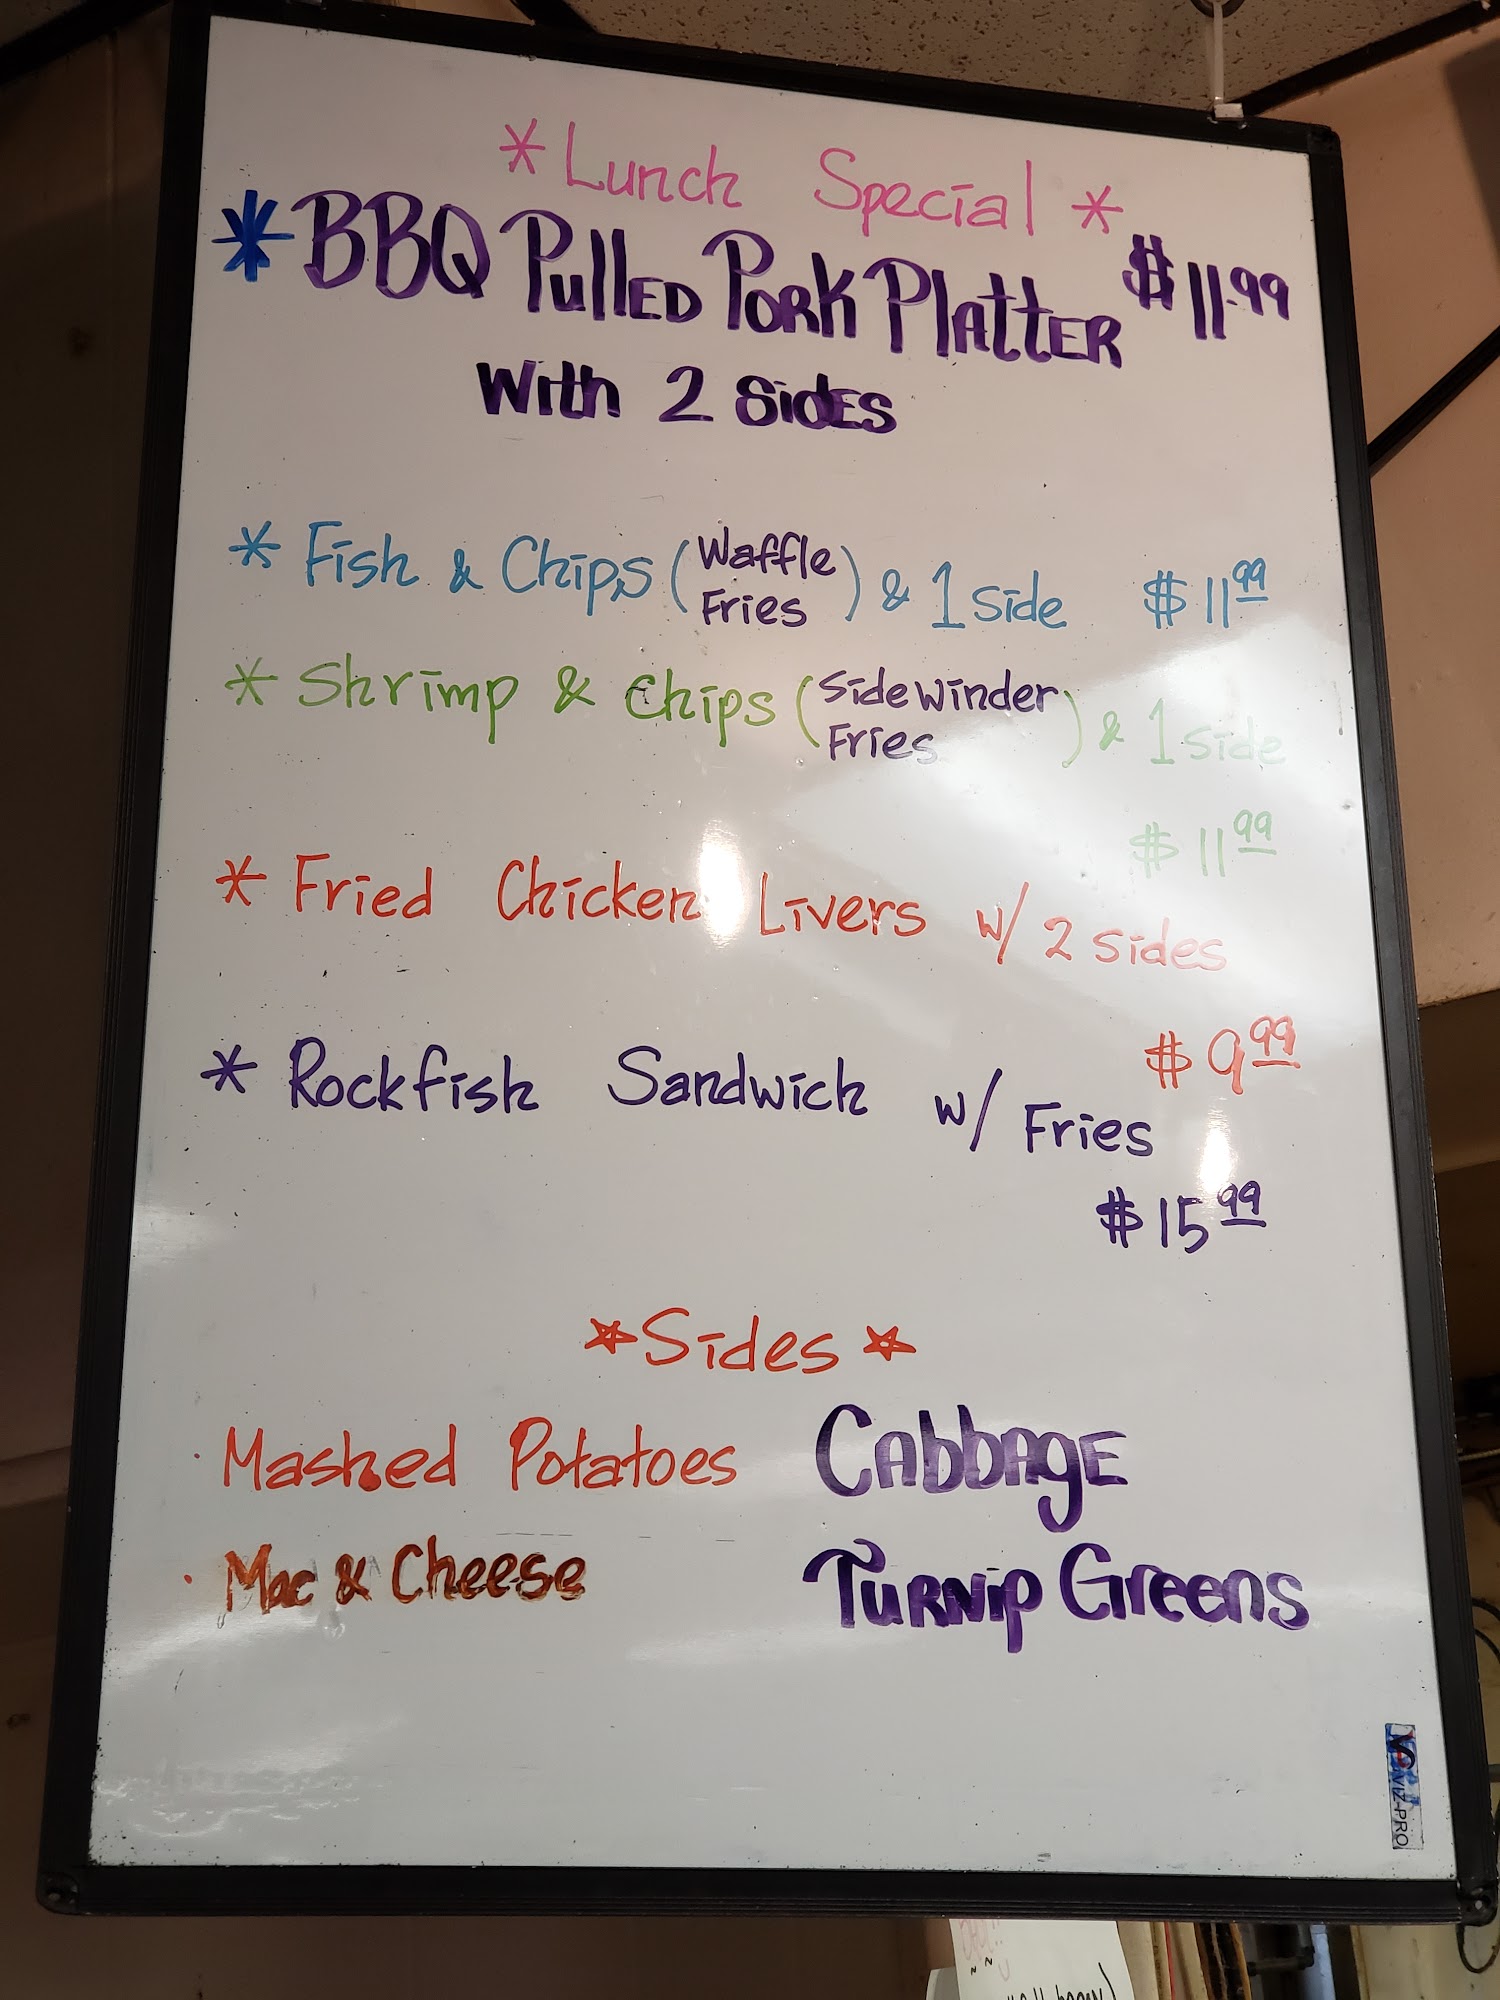 *Lunch Special*
*BBQ Pulled Pork Platter $11.99
With 2 Sides
* Fish & Chips (Waffle Fries) & 1 side $11 99
* Shrimp & Chips (Sidewinder Fries) & 1 side
$11 99
* Fried Chicken Livers w/ 2 sides
$9 99
* Rockfish Sandwich w/ Fries
$15 99
☆Sides☆
· Mashed Potatoes Cabbage
· Mac & Cheese Turnip Greens
VIZ-PRO